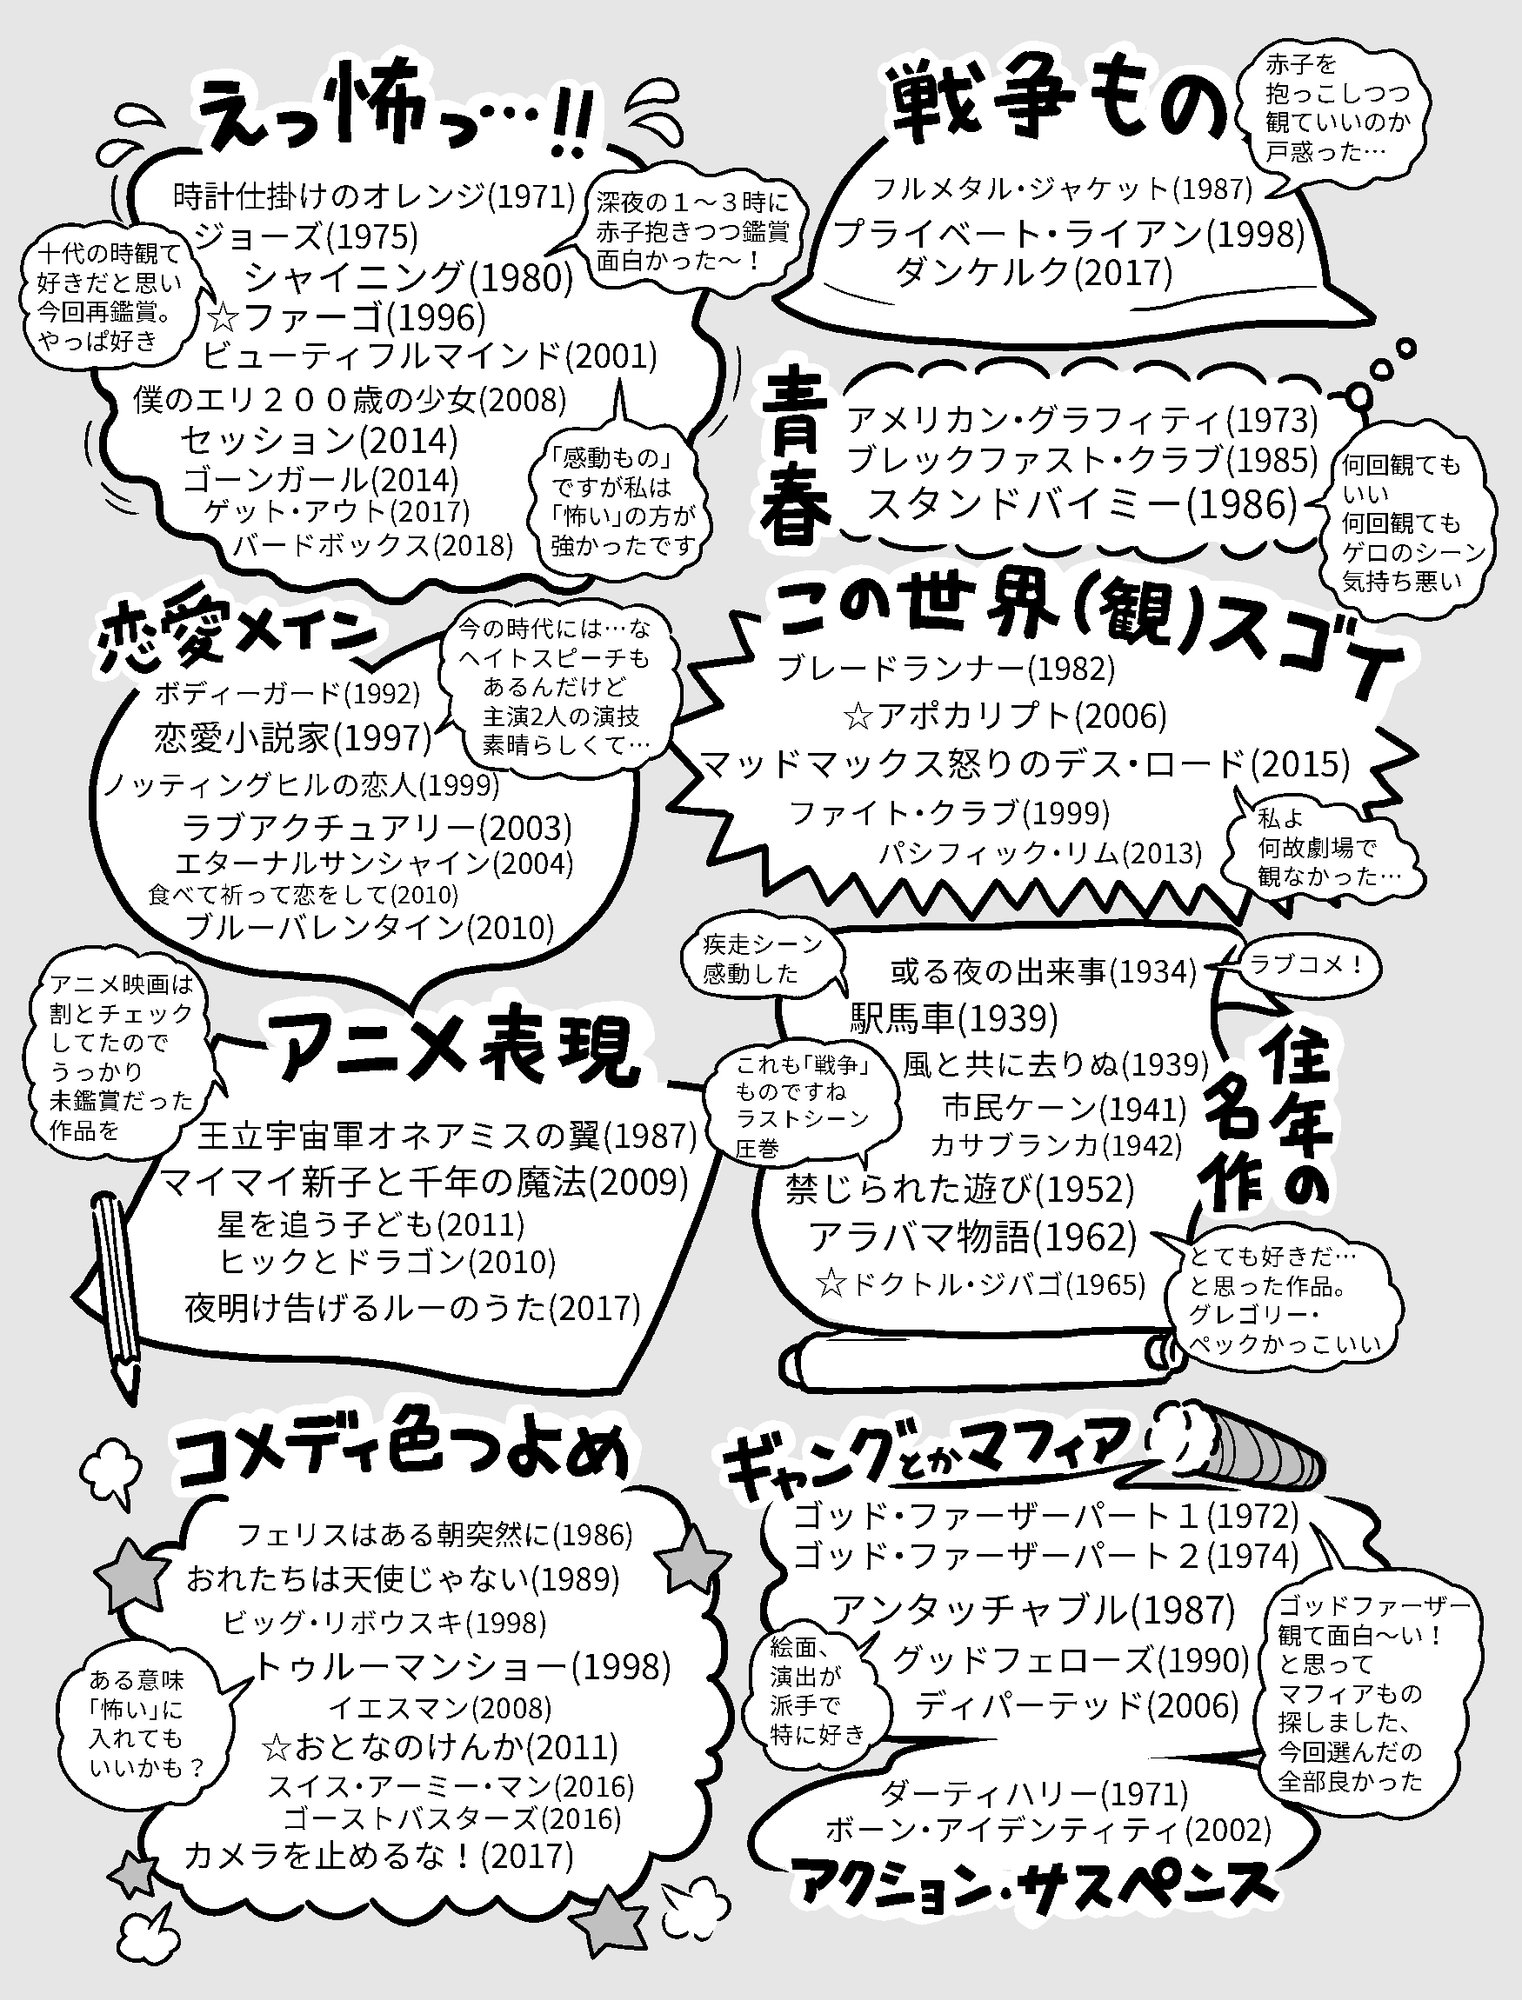 えっ怖っ…!!
時計仕掛けのオレンジ(1971)
ジョーズ(1975)
シャイニング(1980)
☆ファーゴ(1996)
ビューティフルマインド(2001)
僕のエリ２００歳の少女(2008)
セッション(2014)
ゴーンガール(2014)
ゲット・アウト(2017)
バードボックス(2018)
深夜の１～３時に
赤子抱きつつ鑑賞
面白かった～！
十代の時観て
好きだと思い
今回再鑑賞。
やっぱ好き
「感動もの」
ですが私は
「怖い」の方が
強かったです
戦争もの
フルメタル・ジャケット(1987)
プライベート・ライアン(1998)
ダンケルク(2017)
赤子を
抱っこしつつ
観ていいのか
戸惑った…
青春
アメリカン・グラフィティ(1973)
ブレックファスト・クラブ(1985)
スタンドバイミー(1986)
何回観ても
いい
何回観ても
ゲロのシーン
気持ち悪い
恋愛メイン
ボディーガード(1992)
恋愛小説家(1997)
ノッティングヒルの恋人(1999)
ラブアクチュアリー(2003)
エターナルサンシャイン(2004)
食べて祈って恋をして(2010)
ブルーバレンタイン(2010)
今の時代には…な
ヘイトスピーチも
あるんだけど
主演2人の演技
素晴らしくて…
この世界(観)スゴイ
ブレードランナー(1982)
☆アポカリプト(2006)
マッドマックス怒りのデス・ロード(2015)
ファイト・クラブ(1999)
パシフィック・リム(2013)
私よ
何故劇場で
観なかった…
アニメ表現
王立宇宙軍オネアミスの翼(1987)
マイマイ新子と千年の魔法(2009)
星を追う子ども(2011)
ヒックとドラゴン(2010)
夜明け告げるルーのうた(2017)
アニメ映画は
割とチェック
してたので
うっかり
未鑑賞だった
作品を
往年の
名作
或る夜の出来事(1934)
駅馬車(1939)
風と共に去りぬ(1939)
市民ケーン(1941)
カサブランカ(1942)
禁じられた遊び(1952)
アラバマ物語(1962)
☆ドクトル・ジバゴ(1965)
疾走シーン
感動した
ラブコメ！
これも「戦争」
ものですね
ラストシーン
圧巻
とても好きだ…
と思った作品。
グレゴリー・
ペックかっこいい
コメディ色つよめ
フェリスはある朝突然に(1986)
おれたちは天使じゃない(1989)
ビッグ・リボウスキ(1998)
トゥルーマンショー(1998)
イエスマン(2008)
☆おとなのけんか(2011)
スイス・アーミー・マン(2016)
ゴーストバスターズ(2016)
カメラを止めるな！(2017)
ある意味
「怖い」に
入れても
いいかも？
ギャングとかマフィア
ゴッド・ファーザーパート１(1972)
ゴッド・ファーザーパート２(1974)
アンタッチャブル(1987)
グッドフェローズ(1990)
ディパーテッド(2006)
絵面、
演出が
派手で
特に好き
ゴッドファーザー
観て面白～い！
と思って
マフィアもの
探しました、
今回選んだの
全部良かった
ダーティハリー(1971)
ボーン・アイデンティティ(2002)
アクション・サスペンス